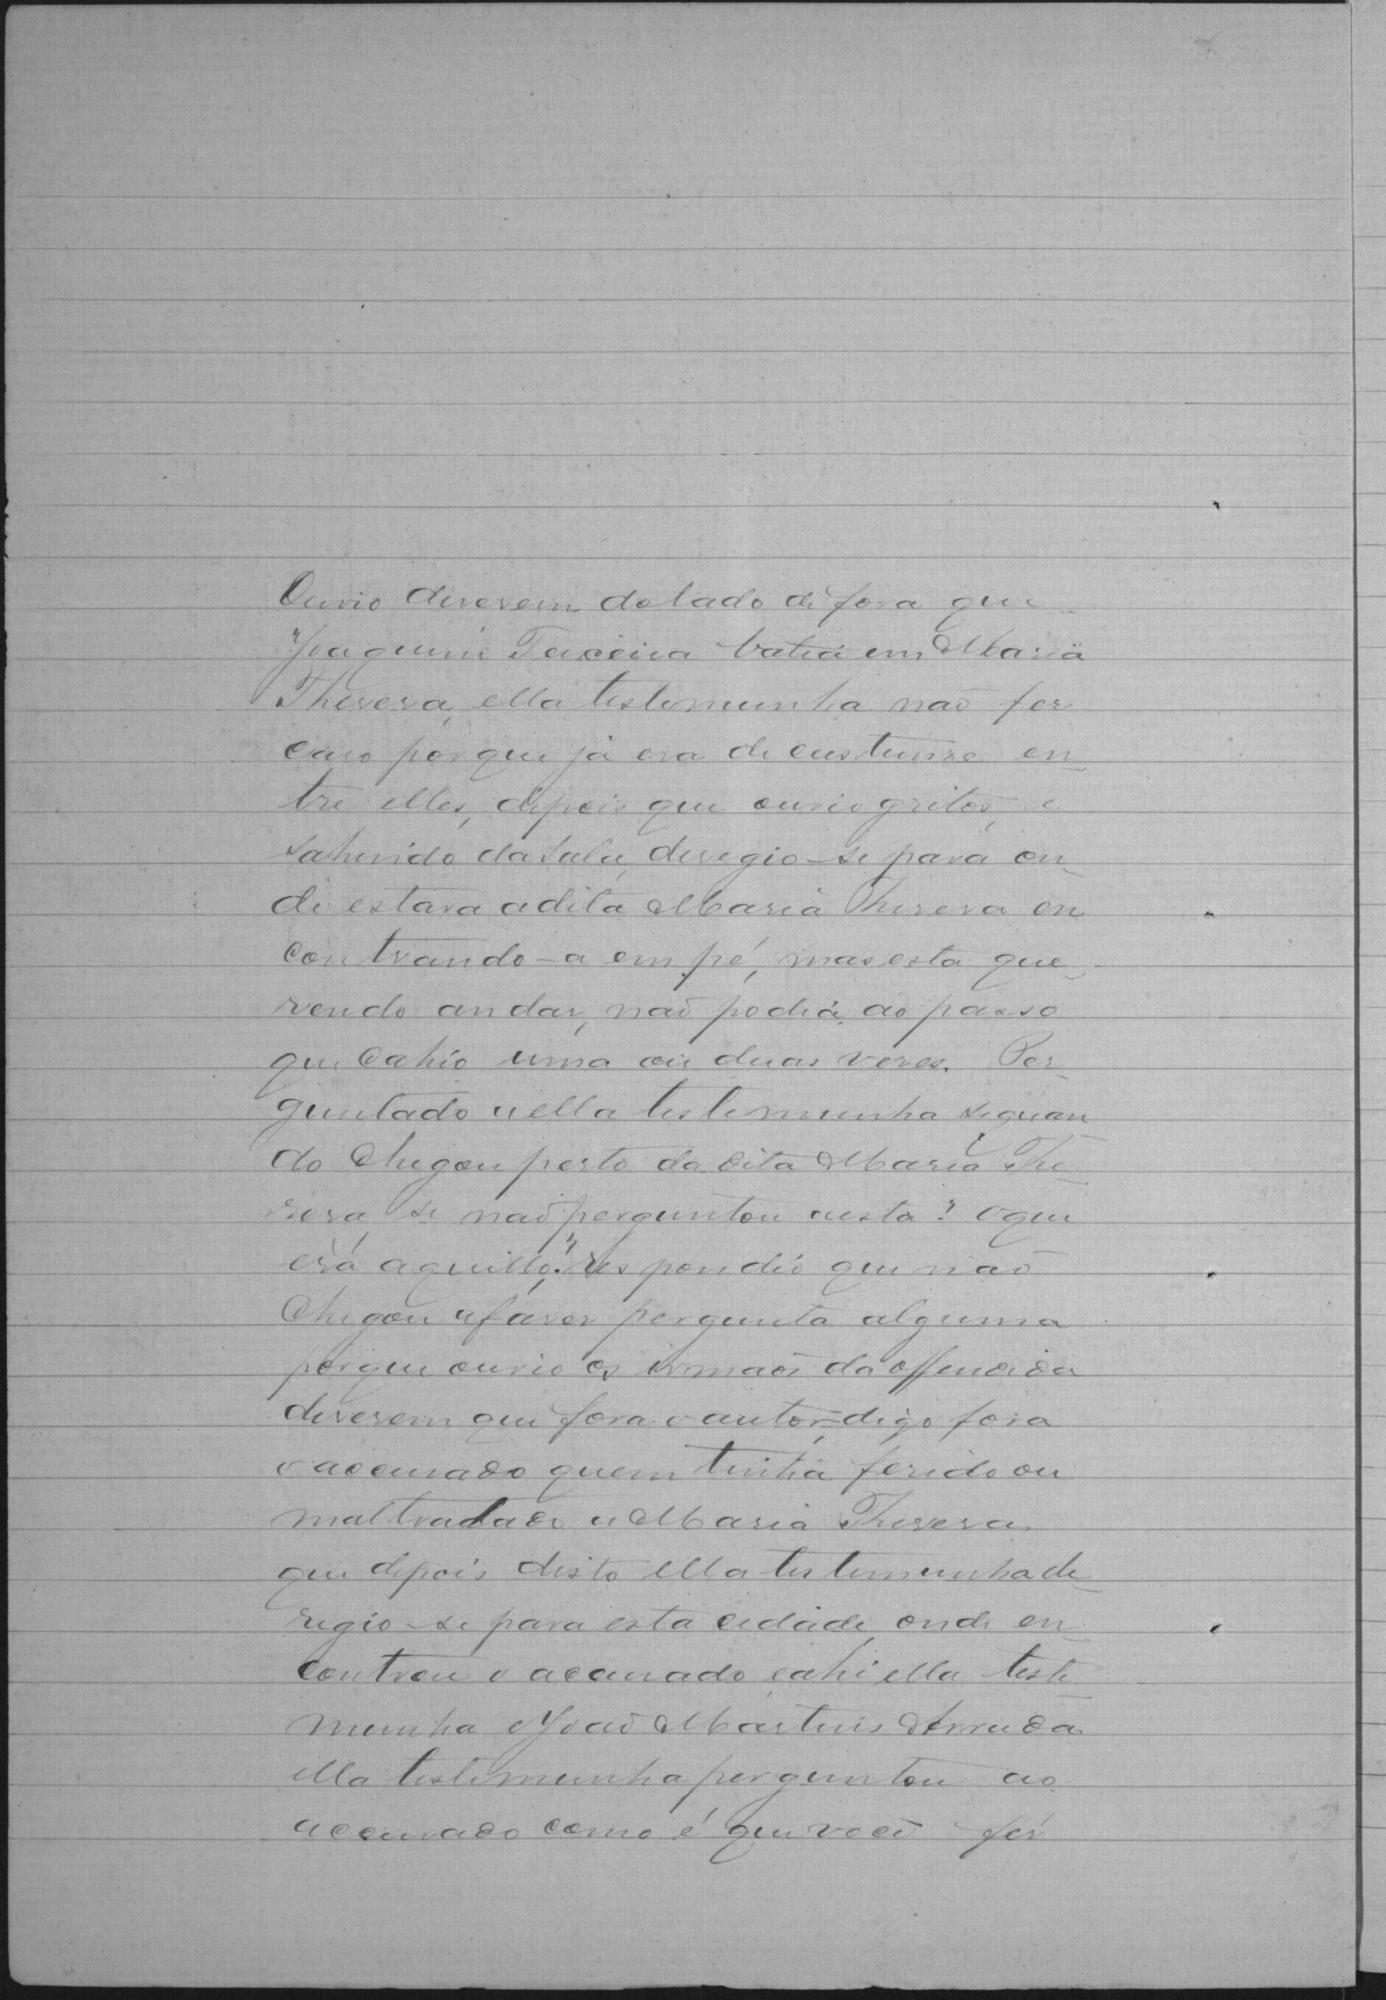 Ouvio diserem do lado de fora que
"Joaquim Teixeira batia em Maria
Theresa, ella testemunha naõ fes
caso porque já era de custume en-
tre elles, depois que ouvio gritos, e
sahindo da sala, deregio-se para on-
de estava a dita Maria Theresa en
contrando-a em pé, mas esta que-
rendo andar, naõ podia, ao passo
que cahio uma ou duas veses. Per-
guntado a ella testemunha se quan
do chegou perto da dita Maria The-
resa, se naõ perguntou a esta? o que
era aquillo?" respondio que não
chegou a faser pergunta alguma
porque ouvio os irmaõs da offendida
diserem que fora o autor, digo fora
o accusado quem tinha ferido ou
maltratado a Maria Theresa
que depois disto ella testemunha de-
regio-se para esta cidade, onde en-
controu o acusado e ahi ella teste
munha e Joaõ Martins Arruda
ella testemunha perguntou ao
accusado como é que você fes